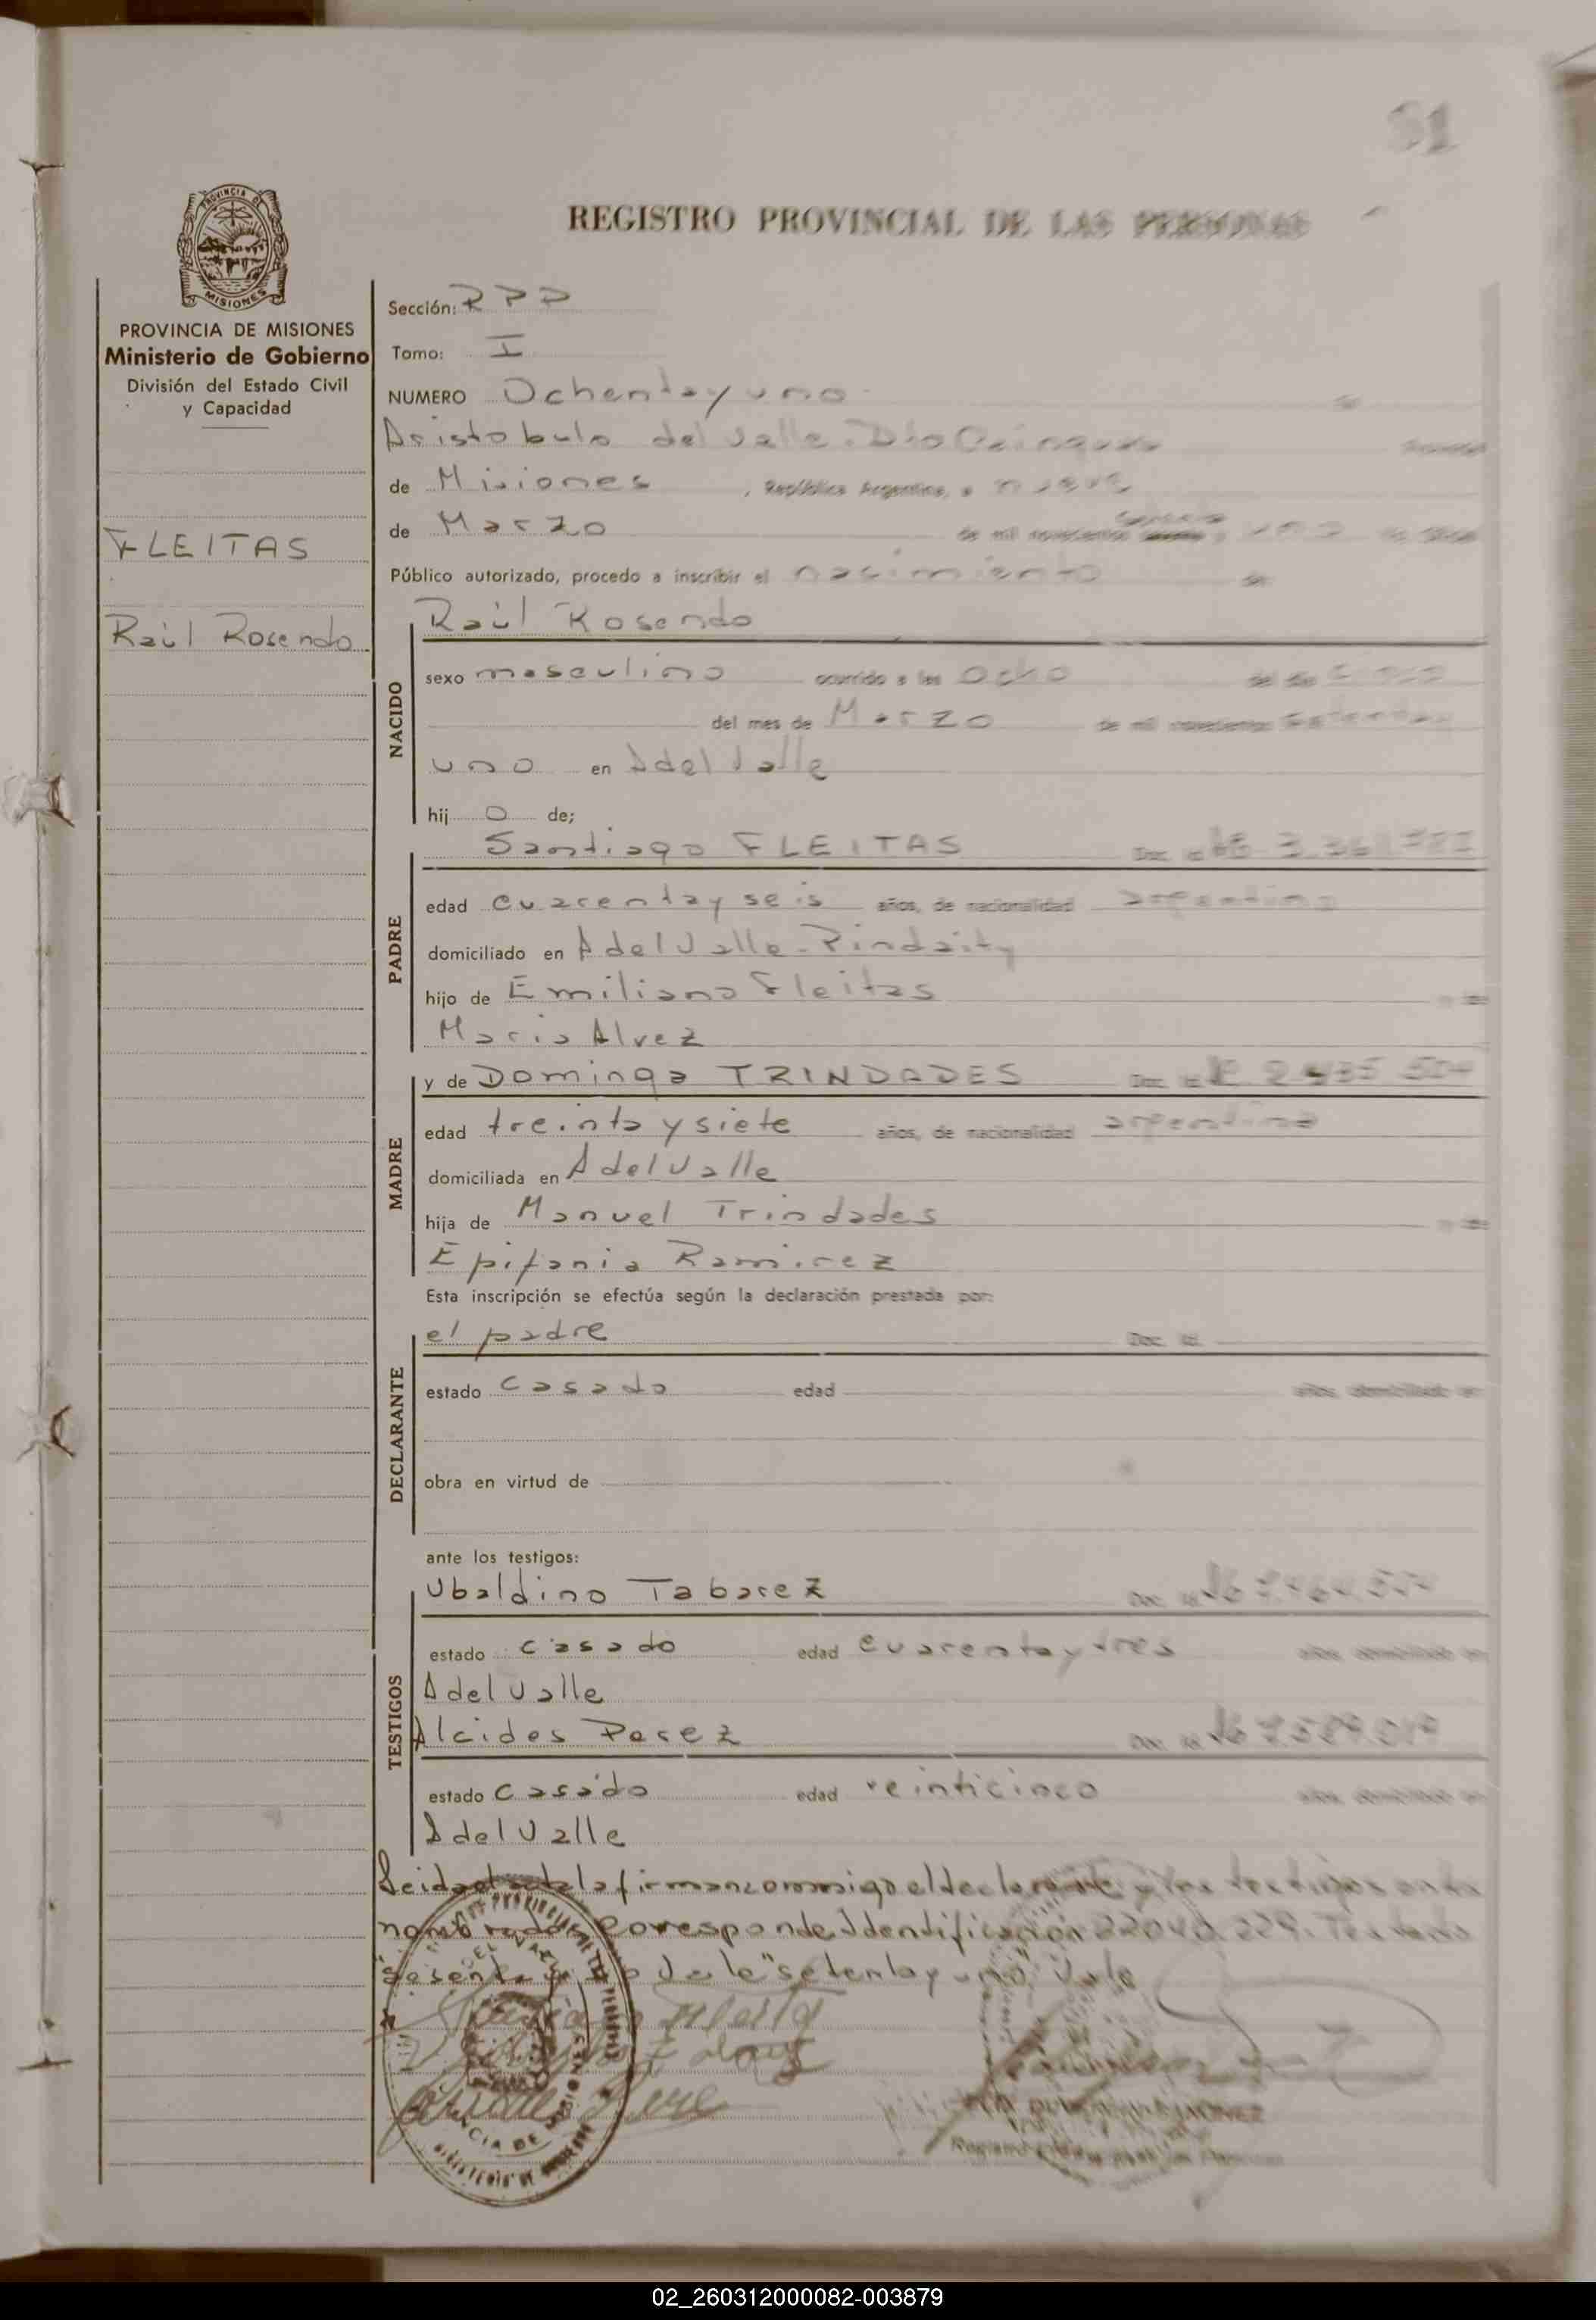 81
REGISTRO PROVINCIAL DE LAS PERSONAS
PROVINCIA DE
MISIONES
PROVINCIA DE MISIONES
Ministerio de Gobierno
División del Estado Civil
y Capacidad
FLEITAS
Raúl Rosendo
Sección: RPP
Tomo: I
NUMERO Ochenta y uno En
Aristobulo del Valle. Dto Cainguas Provincia
de Misiones , República Argentina, a nueve
de Marzo de mil novecientos setenta y uno
Público autorizado, procedo a inscribir el nacimiento de:
NACIDO
Raúl Rosendo
sexo masculino ocurrido a las ocho del día
del mes de Marzo de mil novecientos setenta y
uno en A del Valle
hij o de;
PADRE
Santiago FLEITAS Doc. Id.
edad cuarenta y seis años, de nacionalidad argentino
domiciliado en A del Valle - Pindaity
hijo de Emiliano Fleitas y de
Maria Alvez
MADRE
y de Dominga TRINDADES Doc. Id.
edad treinta y siete años, de nacionalidad argentina
domiciliada en A del Valle
hija de Manuel Trindades y de
Epifania Ramirez
Esta inscripción se efectúa según la declaración prestada por:
DECLARANTE
el padre Doc. Id.
estado casado edad años, domiciliado en
obra en virtud de
ante los testigos:
TESTIGOS
Ubaldino Tabarez Doc. Id.
estado casado edad cuarenta y tres años, domiciliado en
A del Valle
Alcides Perez Doc. Id.
estado casado edad veinticinco años, domiciliado en
A del Valle
Leida el acta la firman conmigo el declarante y los testigos ante
nombrados. Corresponde Identificación Testado
"sesenta y Vale "setenta y uno" Vale
02_260312000082-003879